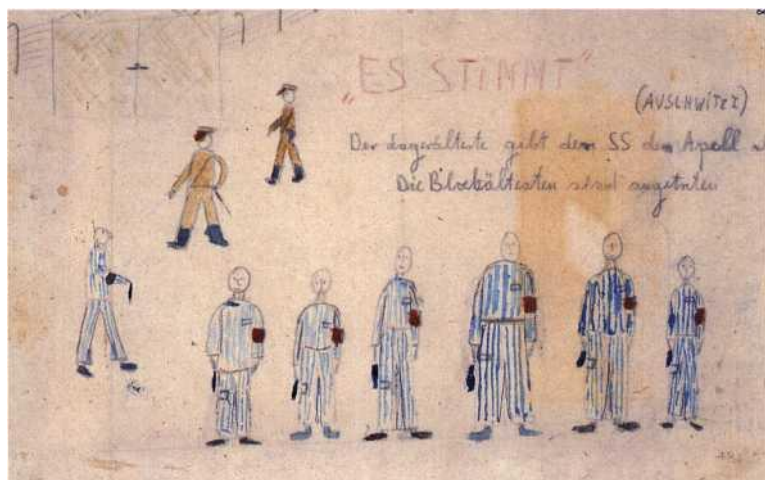 „ES STIMMT“
(AUSCHWITZ)
Der Lagerälteste gibt dem SS den Apell
Die Blockältesten sind angetreten